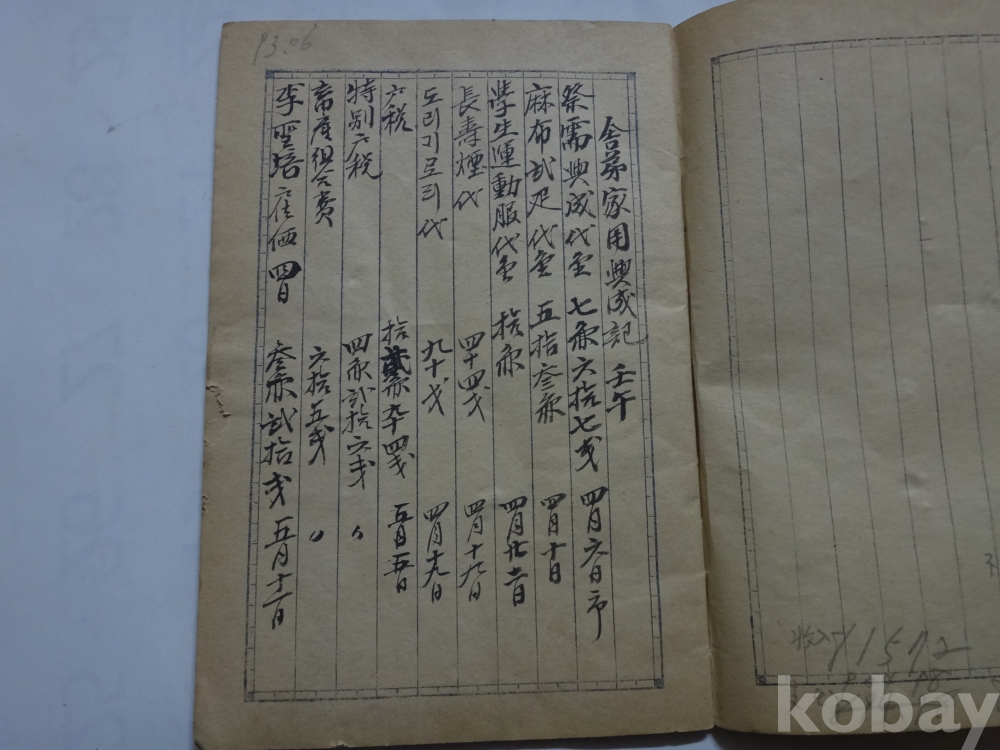 舍弟家用興成記 壬午
祭需興成代金 七兩六拾七戔 四月六日市
麻布貳疋代金 五拾叁兩 四月十日
學生運動服代金 拾兩 四月廿二日
長壽煙代 四十四戔 四月十九日
도리기모리代 九十戔 四月十九日
戶稅 拾貳兩九十四戔 五月五日
特别戶稅 四兩貳拾六戔 〃
畜産組合費 六拾五戔 〃
李聖培 雇価 四日 叁兩貳拾戔 五月十一日
93.06
71572
kobay